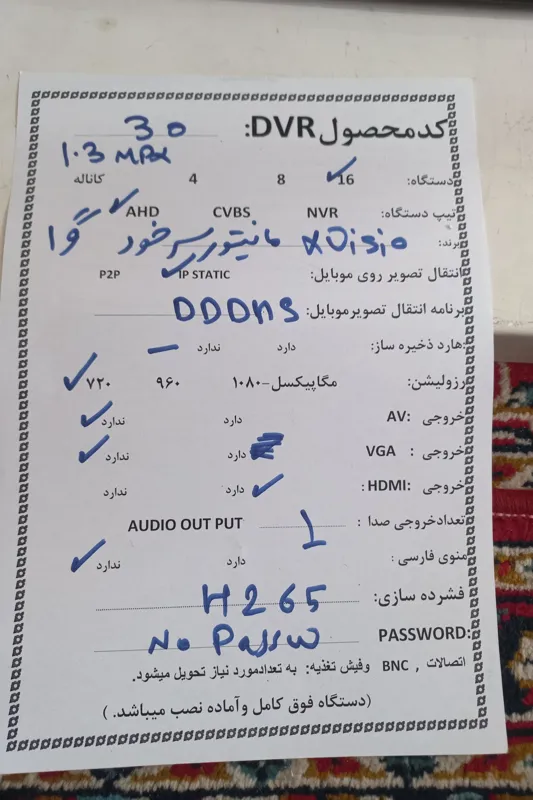 کدمحصول DVR: 30
1.3 MPX
دستگاه: 16 ✓ 8 4 کاناله
تیپ دستگاه: NVR CVBS AHD ✓
برند: XVisio مانیتور سرخود
انتقال تصویر روی موبایل: IP STATIC ✓ P2P
برنامه انتقال تصویرموبایل: DDDNS
هارد ذخیره ساز: دارد ندارد –
رزولیشن: مگاپیکسل-۱۰۸۰ ۹۶۰ ۷۲۰ ✓
خروجی AV: دارد ندارد ✓
خروجی : VGA دارد ندارد ✓
خروجی HDMI: دارد ✓ ندارد
تعدادخروجی صدا : 1 AUDIO OUT PUT
منوی فارسی : دارد ندارد ✓
فشرده سازی: H265
PASSWORD: No Passw
اتصالات , BNC وفیش تغذیه: به تعدادمورد نیاز تحویل میشود.
(دستگاه فوق کامل وآماده نصب میباشد. )